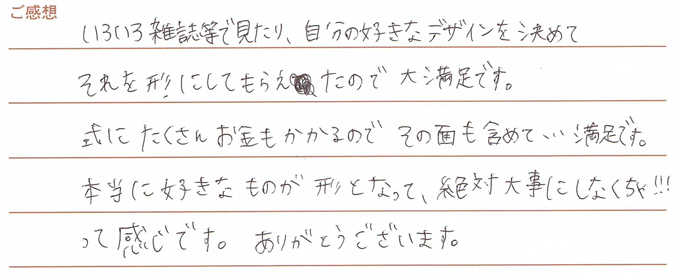 ご感想
いろいろ雑誌等で見たり、自分の好きなデザインを決めて
それを形にしてもらえたので大満足です。
式にたくさんお金もかかるのでその面も含めて…満足です。
本当に好きなものが形となって、絶対大事にしなくちゃ!!!
って感じです。ありがとうございます。